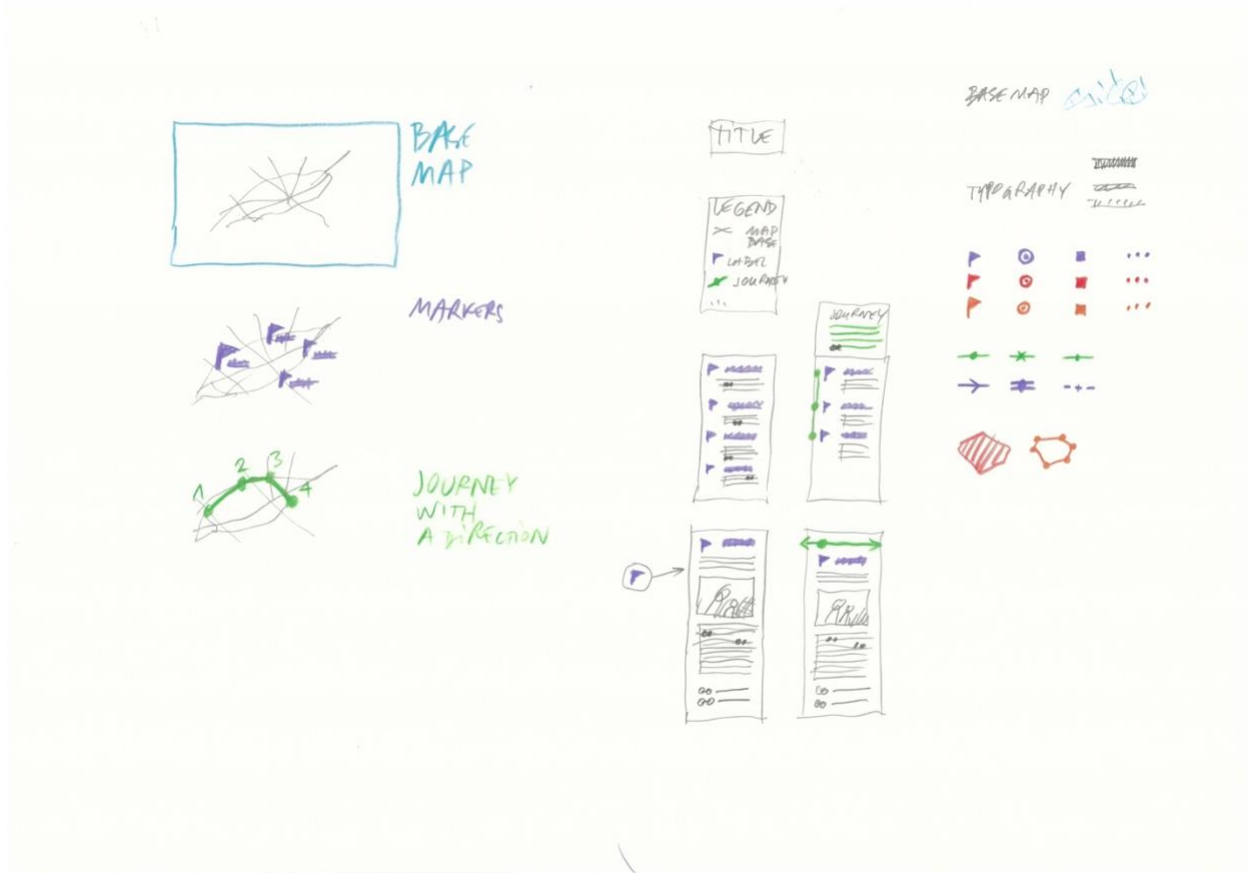 BASE
MAP
MARKERS
1
2
3
4
JOURNEY
WITH
A DIRECTION
TITLE
LEGEND
MAP
BASE
LABEL
JOURNEY
...
JOURNEY
BASE MAP
TYPOGRAPHY